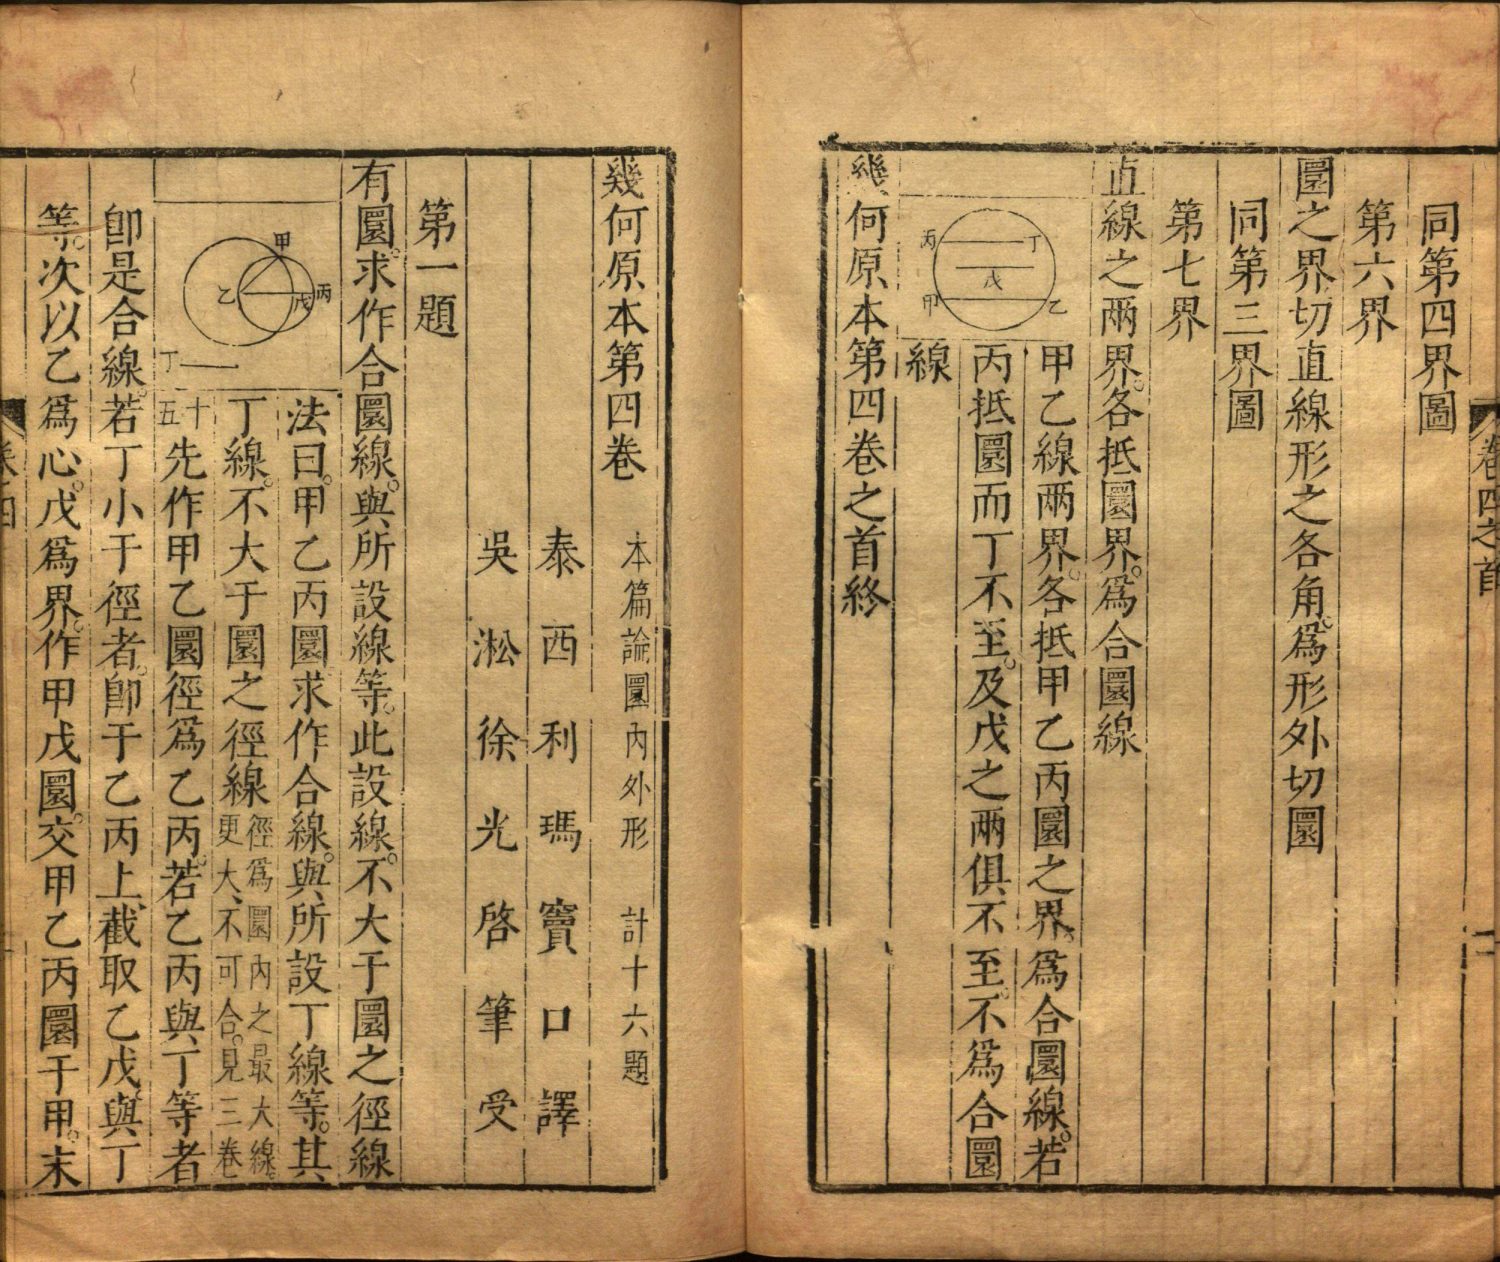 卷四之首
二
同第四界圖
第六界
圜之界切直線形之各角。爲形外切圜
同第三界圖
第七界
直線之兩界。各抵圜界。爲合圜線
丙
丁
戊
甲
乙
甲乙線兩界。各抵甲乙丙圜之界。爲合圜線。若
丙抵圜而丁不至。及戊之兩俱不至。不爲合圜
線
幾何原本第四卷之首終
幾何原本第四卷 本篇論圜內外形 計十六題
泰西利瑪竇口譯
吳淞徐光啓筆受
第一題
有圜。求作合圜線。與所設線等。此設線。不大于圜之徑線
甲
乙
戊
丙
丁
法曰。甲乙丙圜求作合線。與所設丁線等。其
丁線。不大于圜之徑線徑爲圜內之最大線。更大、不可合。見三卷
十五先作甲乙圜徑爲乙丙。若乙丙與丁等者
卽是合線。若丁小于徑者。卽于乙丙上、截取乙戊與丁
等。次以乙爲心。戊爲界。作甲戊圜。交甲乙丙圜于甲。末
卷四